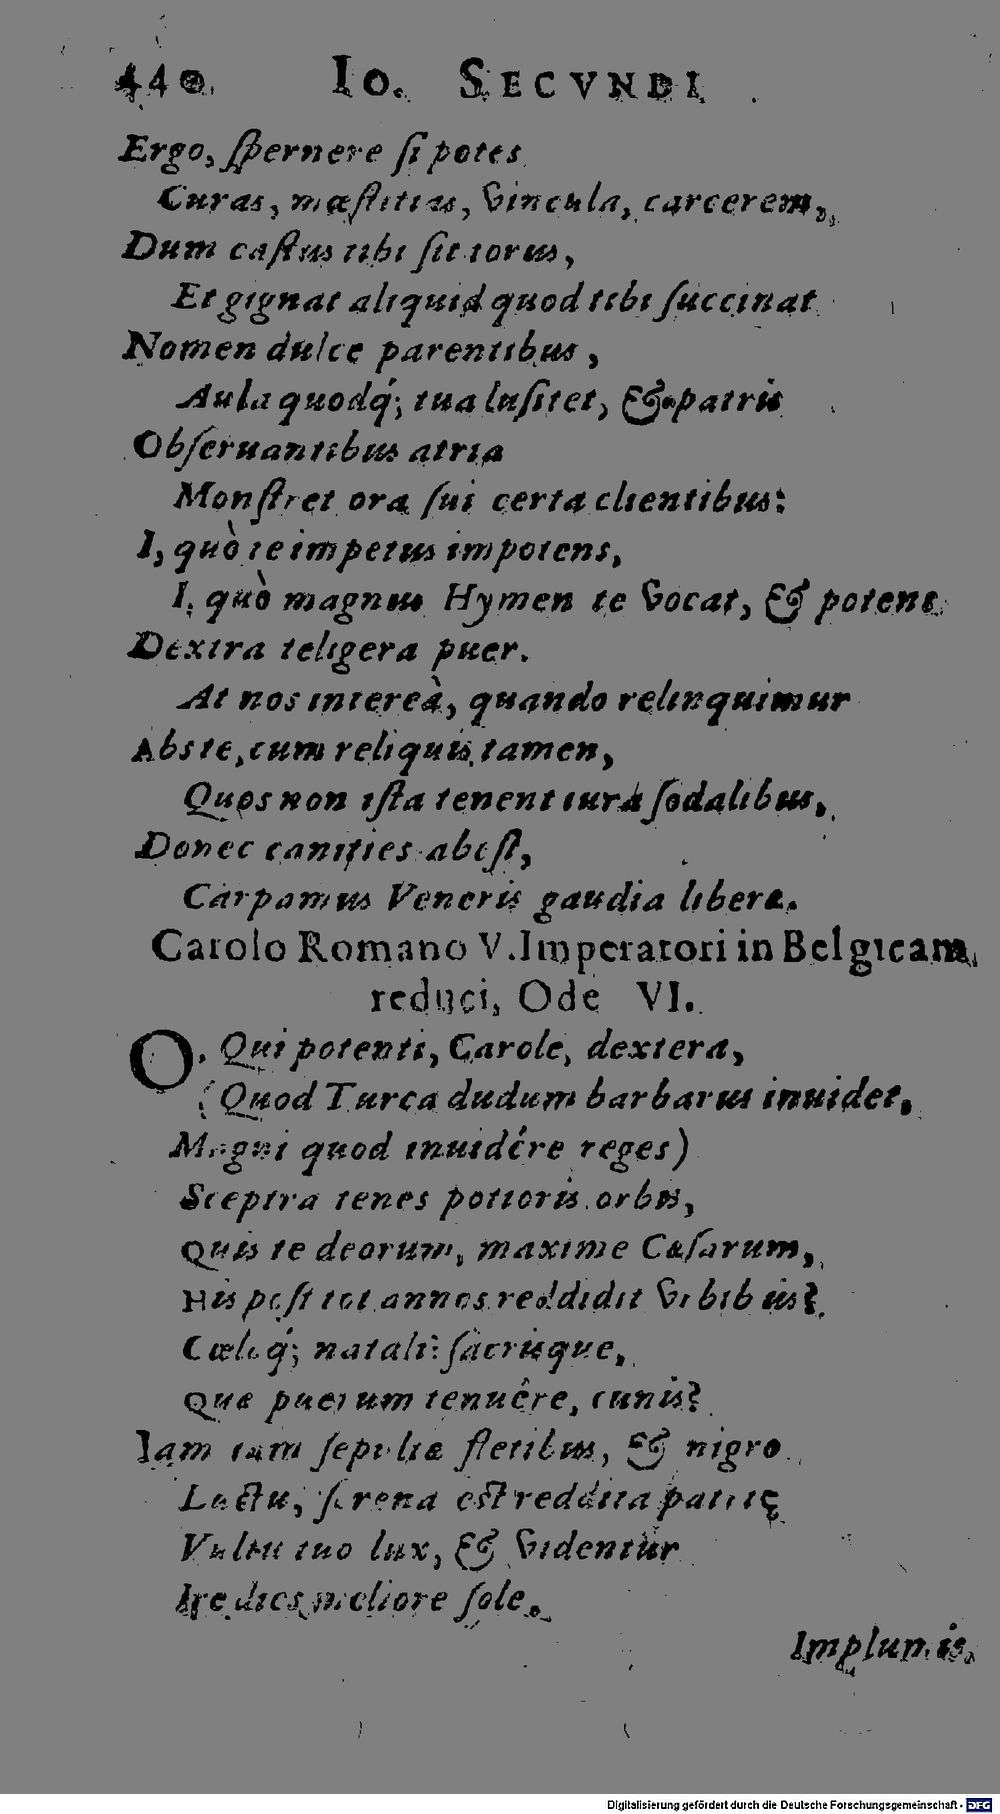 440. Io. SECVNDI
Ergo, ſpernere ſi potes
Curas, mæſtitias, vincula, carcerem,
Dum caſtus tibi ſit torus,
Et gignat aliquid quod tibi ſuccinat
Nomen dulce parentibus,
Aula quodq́; tua luſitet, & patris
Obſeruantibus atria
Monſtret ora ſui certa clientibus:
I, quò te impetus impotens,
I, quò magnus Hymen te vocat, & potens
Dextra teligera puer.
At nos intereà, quando relinquimur
Abs te, cum reliquis tamen,
Quos non iſta tenent iura ſodalibus,
Donec canities abeſt,
Carpamus Veneris gaudia libera.
Carolo Romano V. Imperatori in Belgicam
reduci, Ode VI.
O Qui potenti, Carole, dextera,
(Quod Turca dudum barbarus inuidet,
Magni quod inuidére reges)
Sceptra tenes potioris orbis,
Quis te deorum, maxime Cæſarum,
His poſt tot annos reddidit vrbibus?
Cœloq́; natali: ſacrisque,
Quæ puerum tenuêre, cunis?
Iam iam ſepultæ fletibus, & nigro
Luctu, ſerena est reddita patrię
Vultu tuo lux, & videntur
Ire dies meliore ſole.
Implumis.
Digitalisierung gefördert durch die Deutsche Forschungsgemeinschaft - DFG